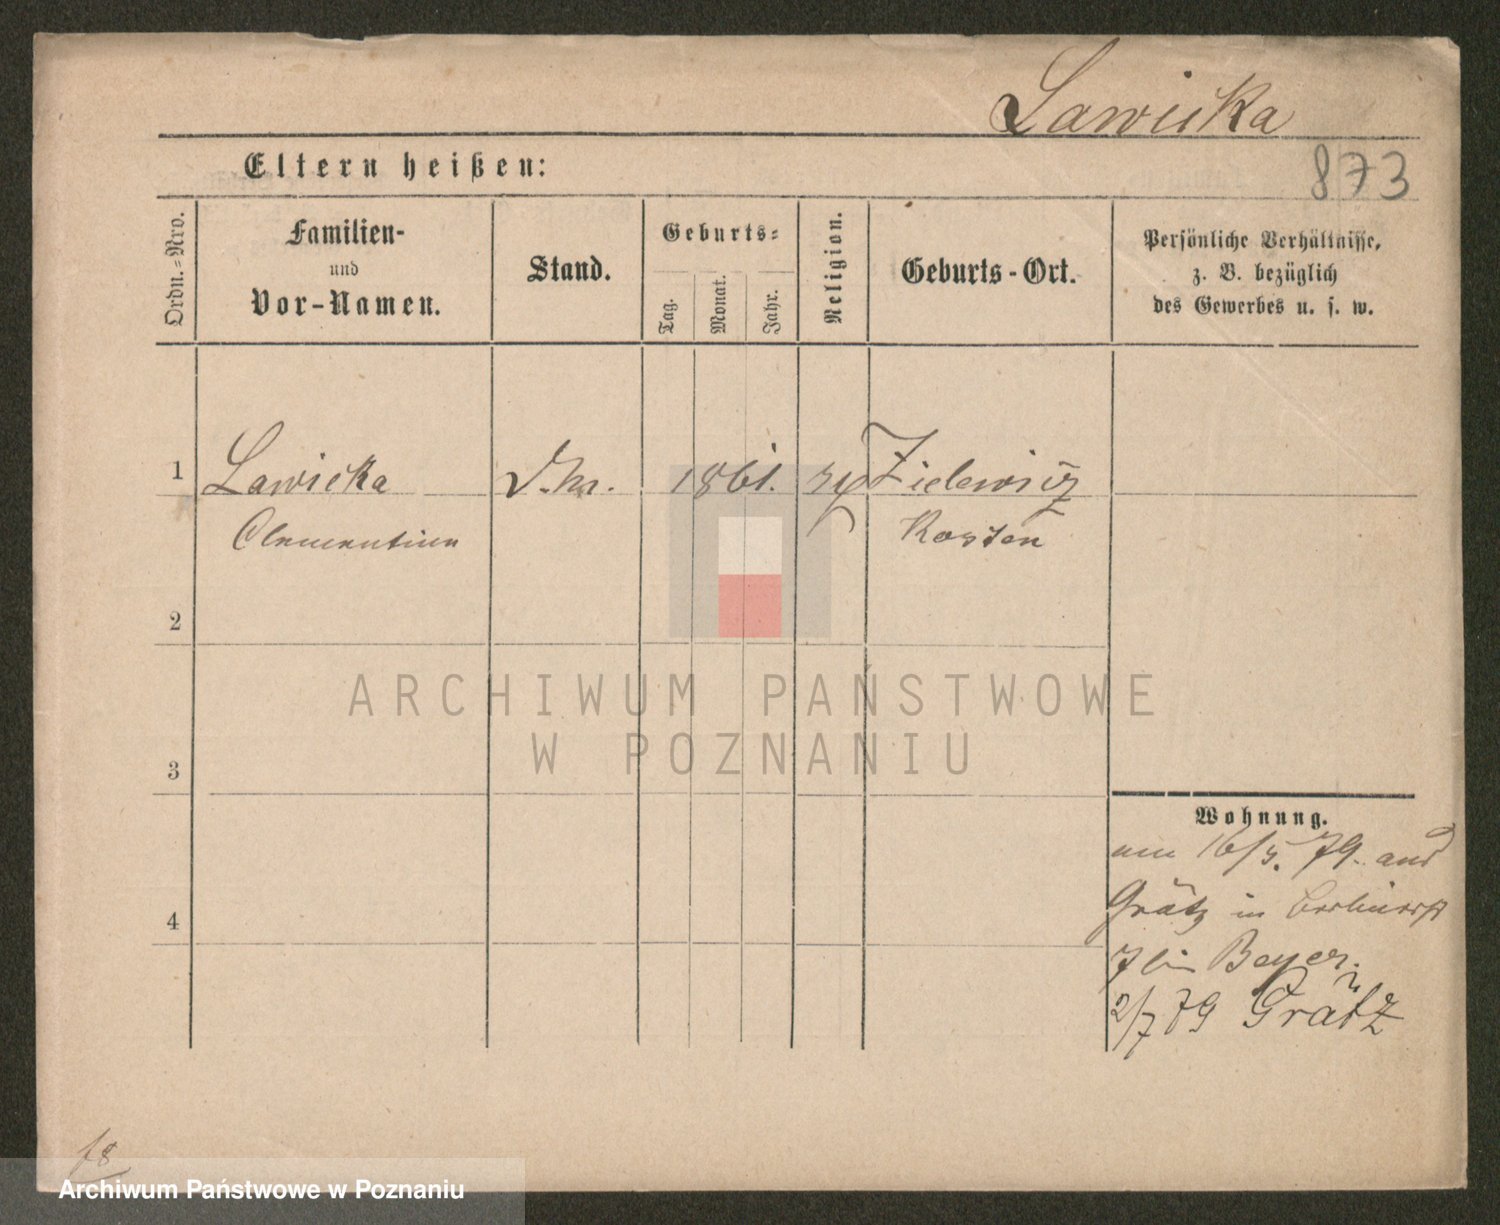 Lawicka
Eltern heißen:
873
Ordn.-Nro.
Familien-
und
Vor-Namen.
Stand.
Geburts-
Tag.
Monat.
Jahr.
Religion.
Geburts-Ort.
Persönliche Verhältnisse,
z. B. bezüglich
des Gewerbes u. s. w.
1 Lawicka 1861. Zielewicz
Clementine Kosten
2
ARCHIWUM PAŃSTWOWE
W POZNANIU
3
4
Wohnung.
16/5. 79. aus
Grätz in Berlinerst
7 bei Beyer.
2/7 79 Grätz
Archiwum Państwowe w Poznaniu